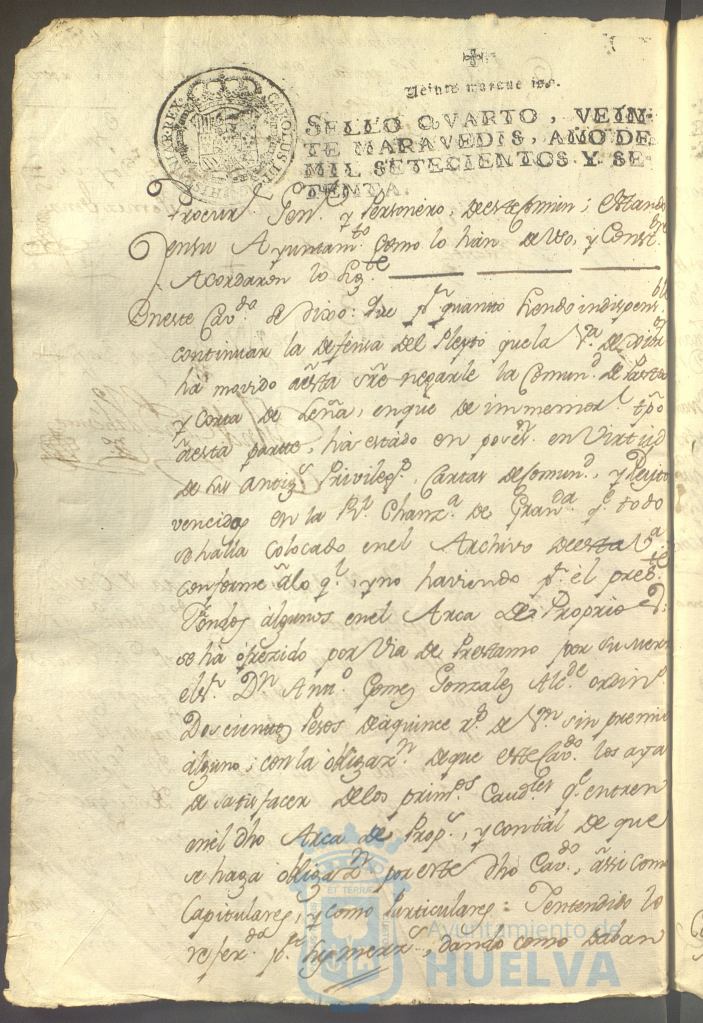 Veinte marauedis.
SELLO QVARTO, VEIN-
TE MARAVEDIS, AÑO DE
MIL SETECIENTOS Y SE-
TENTA.
Procur.r Gen.l y Personero, deste Comun; estando
en su Ayuntam.to como lo han de Uso, y Const.bre
Acordaron lo sig.te
En este Cav.do se dixo: Que p.r quanto siendo indispens.ble
continuar la defensa del Pleyto que la V.a de
ha movido a esta sre negarle la Comun.d de Pastos
y Corta de Leña, en que de immemor.l tpo
a esta parte, ha estado en poses.n en Virtud
de sus antig.s Privileg.s, Cartas de Comun.d, y Pleyto
vencido en la R.l Chanz.a de Gran.da q.e todo
se halla colocado en el Archivo de esta V.a
conforme a lo q.l, y no haviendo p.r el pres.te
fondos algunos en el Arca de Proprios:
se ha ofrezido por Via de Prestamo por su merd
el s.r D.n Ant.o Gomez Gonzalez Alc.de ordin.o
Doscientos Pesos de a quince r.s de V.n sin premio
alguno; con la obligaz.n de que este Cav.do los aya
de satisfacer de los prim.os Caud.les q.e entren
en el dho Arca de Prop.s, y con tal de que
se haga obligaz.n por este dho Cav.do, assi como
Capitulares, y como Particulares: Y entendido lo
refer.do p.r sus merz.s, dando como daban
CAROLUS III
REX
Ayuntamiento de
HUELVA